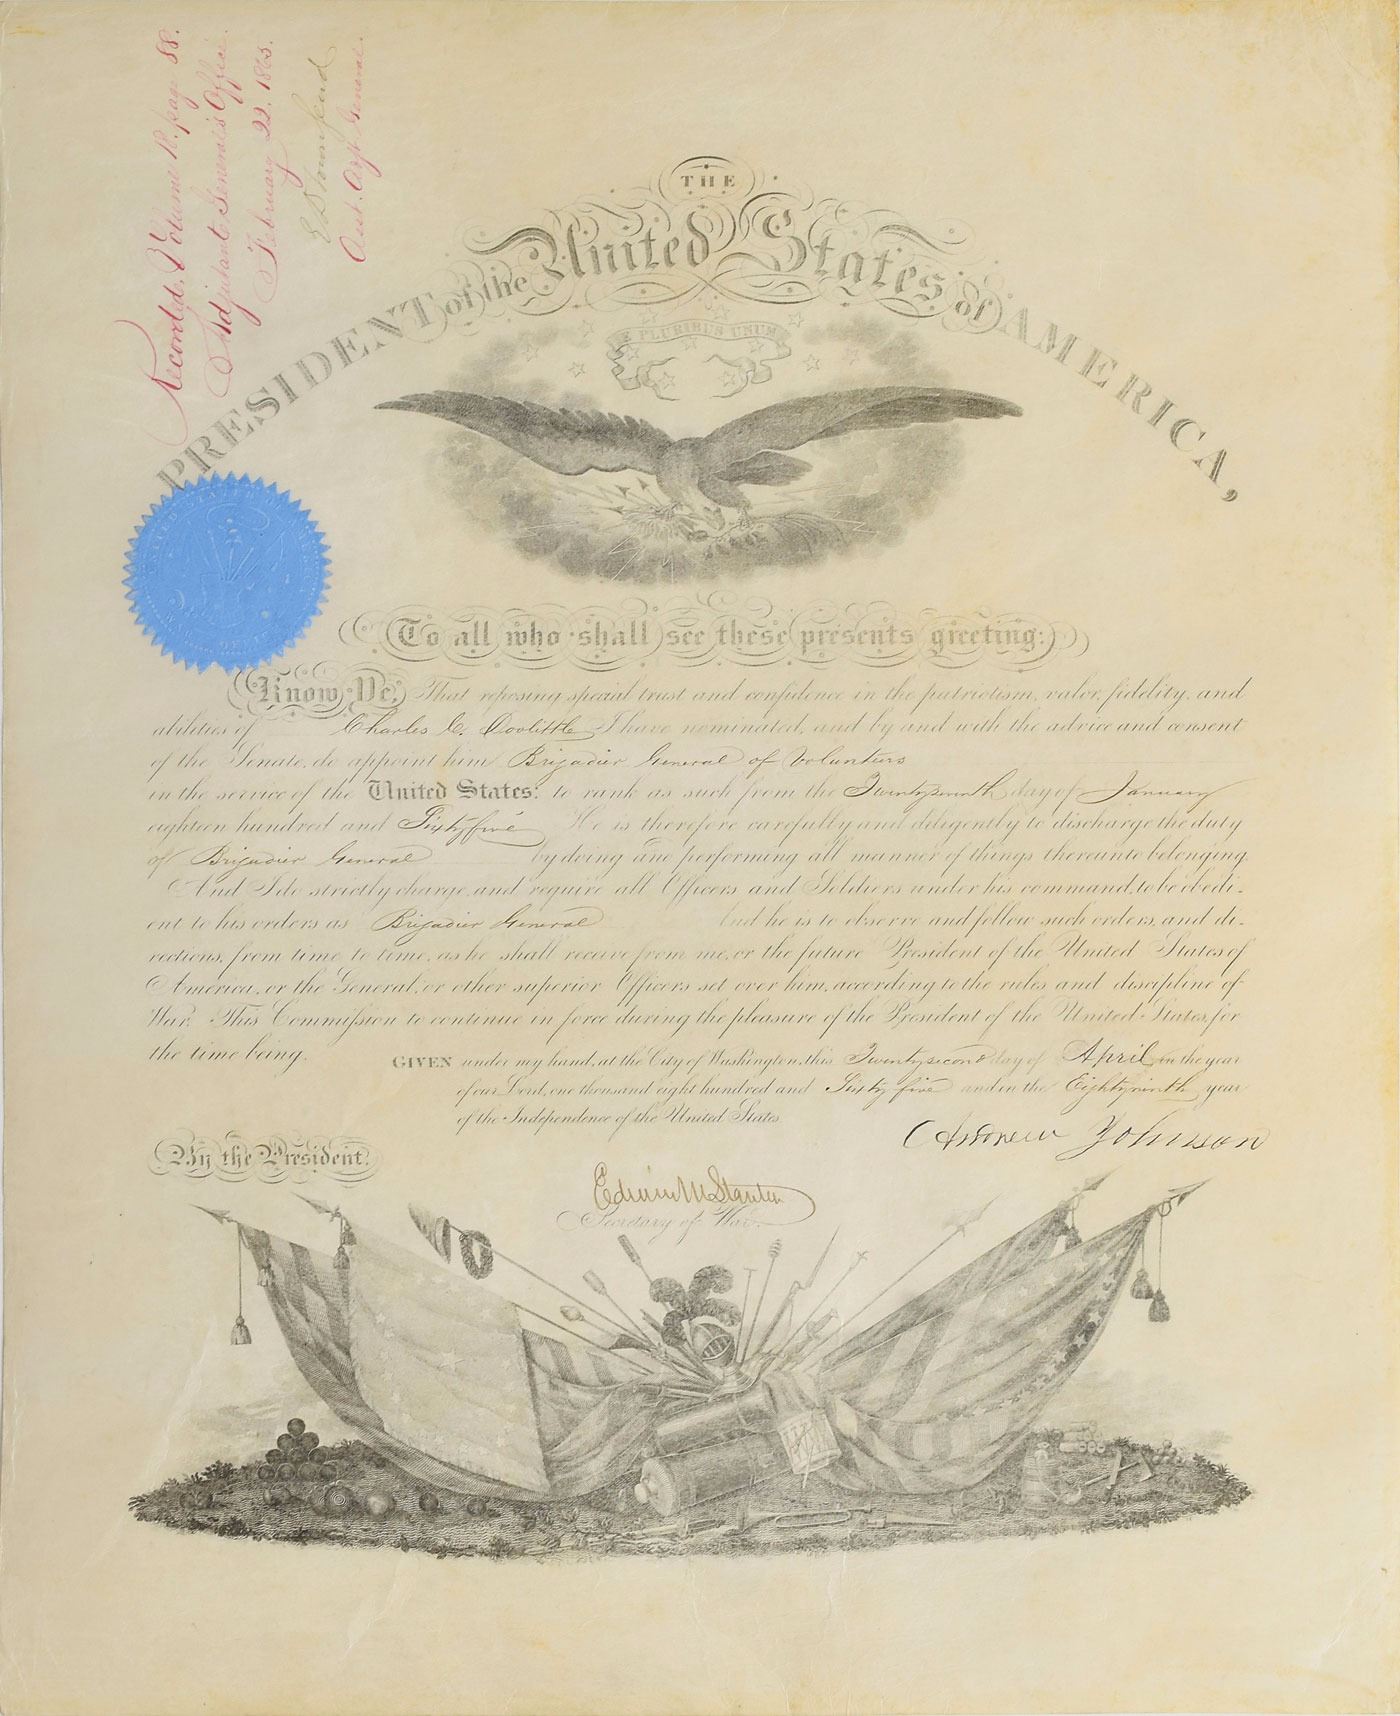 Recorded, Volume 12. page 88.
Adjutant General's Office.
February 22. 1865.
E D Townsend
Asst. Adjt. General.
THE
PRESIDENT of the United States of AMERICA,
E PLURIBUS UNUM
To all who shall see these presents greeting:
Know Ye, That reposing special trust and confidence in the patriotism, valor, fidelity, and
abilities of Charles C. Doolittle I have nominated, and by and with the advice and consent
of the Senate, do appoint him Brigadier General of Volunteers
in the service of the United States: to rank as such from the Twentyseventh day of January
eighteen hundred and Sixty five He is therefore carefully and diligently to discharge the duty
of Brigadier General by doing and performing all manner of things thereunto belonging.
And I do strictly charge, and require all Officers and Soldiers under his command, to be obedi-
ent to his orders as Brigadier General And he is to observe and follow such orders, and di-
rections, from time to time, as he shall receive from me, or the future President of the United States of
America, or the General, or other superior Officers set over him, according to the rules and discipline of
War. This Commission to continue in force during the pleasure of the President of the United States, for
the time being.
GIVEN under my hand, at the City of Washington, this Twentysecond day of April in the year
of our Lord, one thousand eight hundred and Sixty five and in the Eightyninth year
of the Independence of the United States.
Andrew Johnson
By the President.
Edwin M Stanton
Secretary of War.